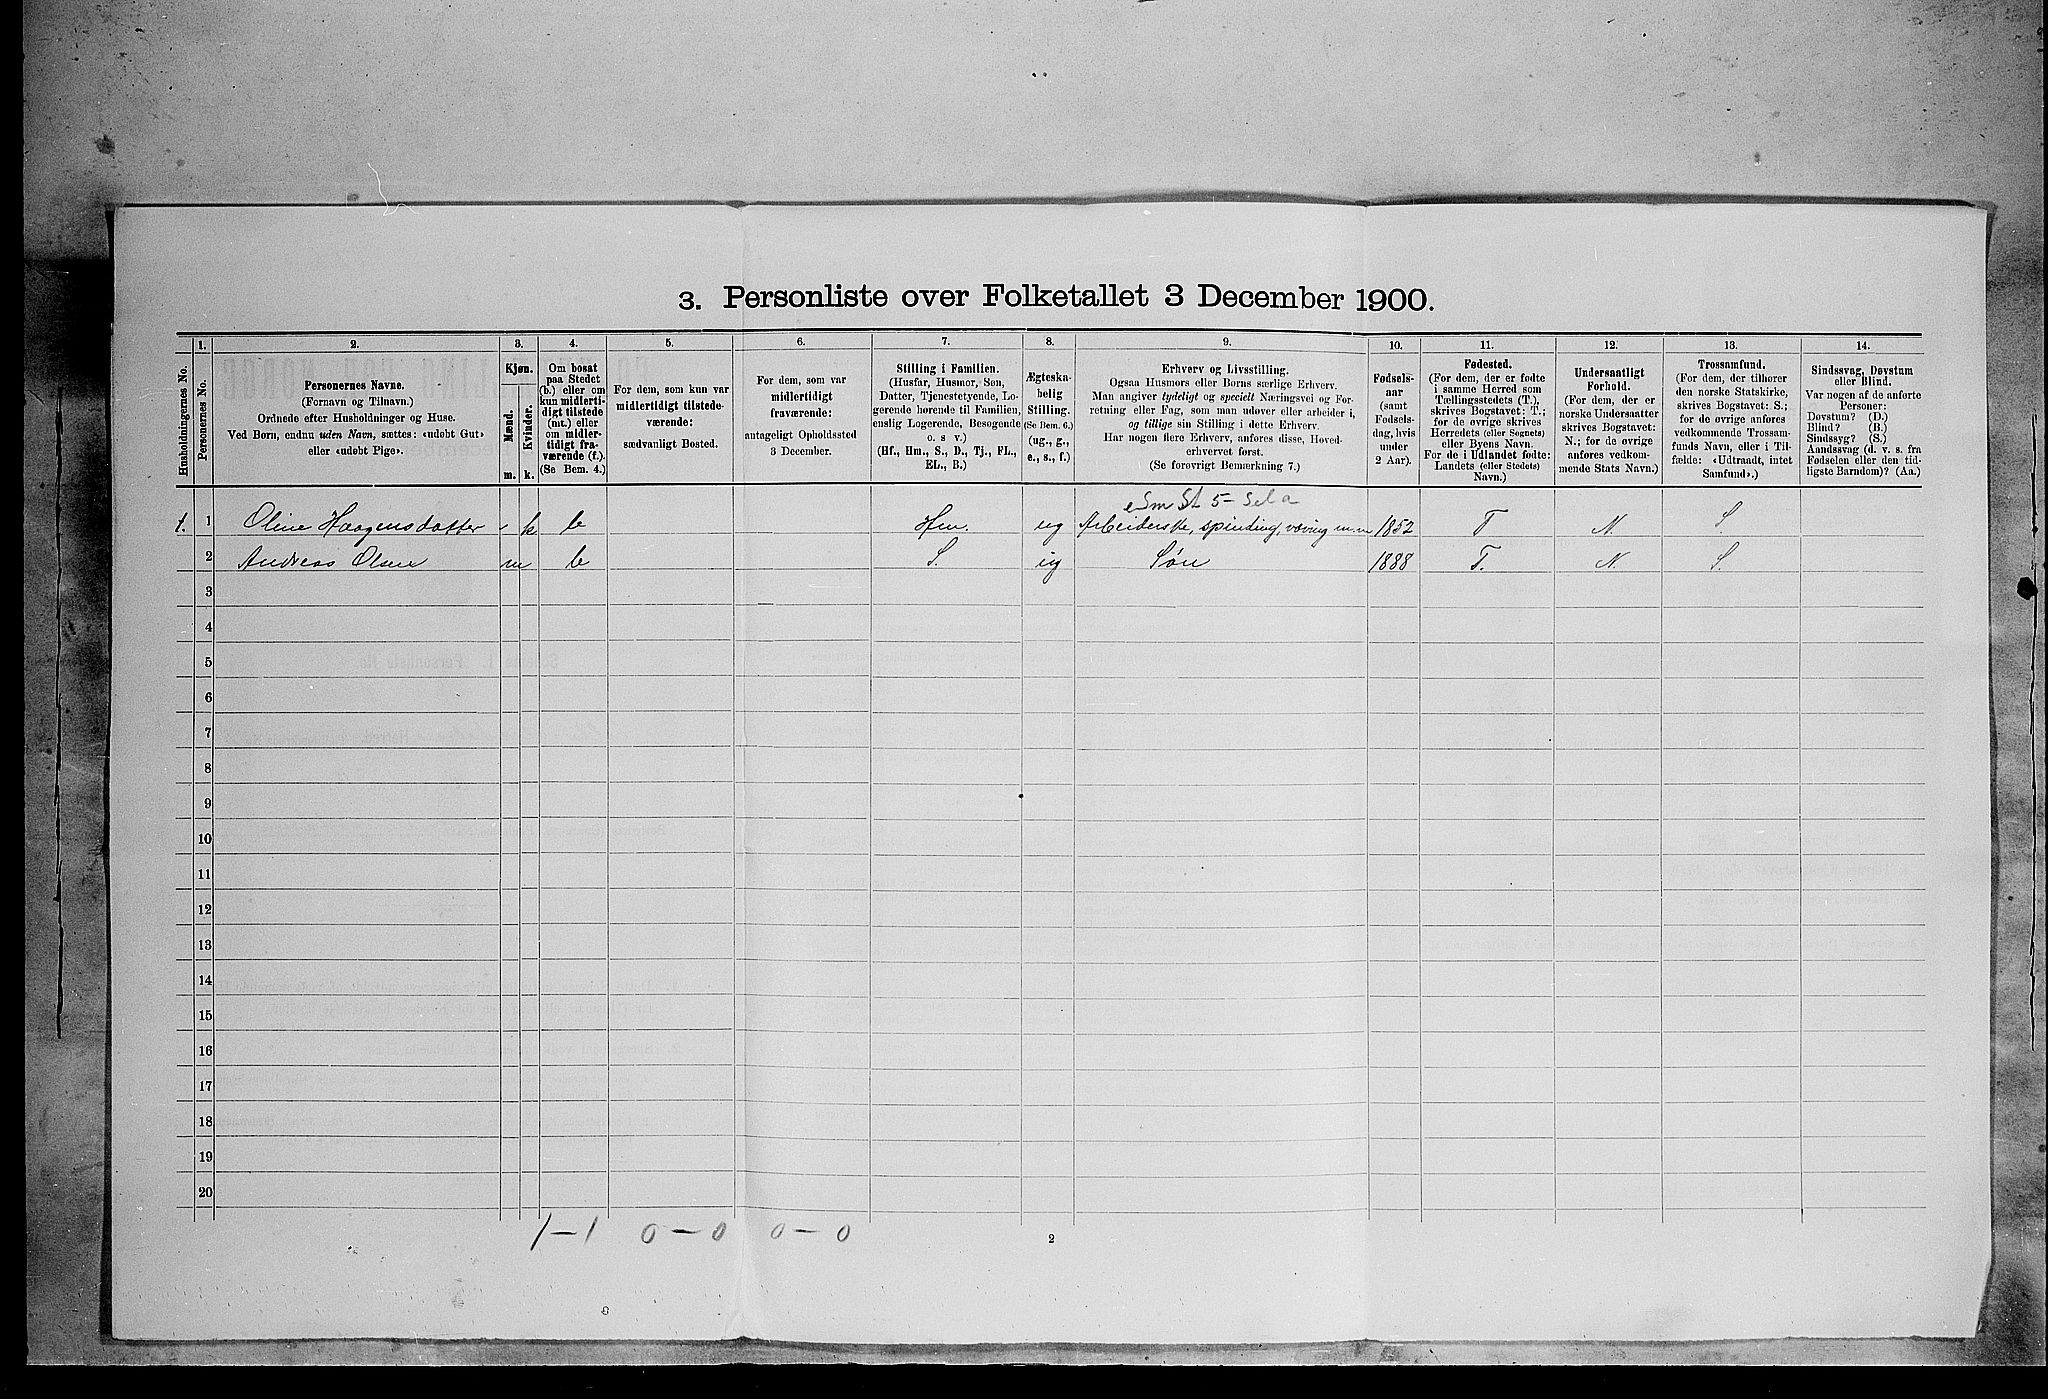 3. Personliste over Folketallet 3 December 1900.
1. 2. 3. 4. 5. 6. 7. 8. 9. 10. 11. 12. 13. 14.
Husholdningernes No.
Personernes No.
Personernes Navne.
(Fornavn og Tilnavn.)
Ordnede efter Husholdninger og Huse.
Ved Børn, endnu uden Navn, sættes: «udøbt Gut»
eller «udøbt Pige».
Kjøn.
Mænd.
Kvinder.
m. k.
Om bosat
paa Stedet
(b.) eller om
kun midlerti-
digt tilstede
(mt.) eller
om midler-
tidigt fra-
værende (f.).
(Se Bem. 4.)
For dem, som kun var
midlertidigt tilstede-
værende:
sædvanligt Bosted.
For dem, som var
midlertidigt
fraværende:
antageligt Opholdssted
3 December.
Stilling i Familien.
(Husfar, Husmor, Søn,
Datter, Tjenestetyende, Lo-
gerende hørende til Familien,
enslig Logerende, Besøgende
o. s v.)
(Hf., Hm., S., D., Tj., FL.,
EL., B.)
Ægteska-
belig
Stilling.
(Se Bem. 6.)
(ug., g.,
e., s., f.)
Erhverv og Livsstilling.
Ogsaa Husmors eller Børns særlige Erhverv.
Man angiver tydeligt og specielt Næringsvei og For-
retning eller Fag, som man udøver eller arbeider i,
og tillige sin Stilling i dette Erhverv.
Har nogen flere Erhverv, anføres disse, Hoved-
erhvervet først.
(Se forøvrigt Bemerkning 7.)
Fødsels-
aar
(samt
Fødsels-
dag, hvis
under
2 Aar).
Fødested.
(For dem, der er fødte
i samme Herred som
Tællingsstedets (T.),
skrives Bogstavet: T.;
for de øvrige skrives
Herredets (eller Sognets)
eller Byens Navn.
For de i Udlandet fødte:
Landets (eller Stedets)
Navn.)
Undersaatligt
Forhold.
(For dem, der er
norske Undersaatter
skrives Bogstavet:
N.; for de øvrige
anføres vedkom-
mende Stats Navn.)
Trossamfund.
(For dem, der tilhører
den norske Statskirke,
skrives Bogstavet: S.;
for de øvrige anføres
vedkommende Trossam-
funds Navn, eller i Til-
fælde: «Udtraadt, intet
Samfund».)
Sindssvag, Døvstum
eller Blind.
Var nogen af de anførte
Personer:
Døvstum? (D.)
Blind? (B.)
Sindssyg? (S.)
Aandssvag (d. v. s. fra
Fødselen eller den tid-
ligste Barndom)? (Aa.)
1. 1 Oline Haagensdatter - k b Hm. ug Arbeiderske, spinding, væving m.m 1852 T N. S.
2 Andreas Olsen m b S. ug Søn 1888 T. N. S.
3
4
5
6
7
8
9
10
11
12
13
14
15
16
17
18
19
20
1-1 0-0 0-0
2